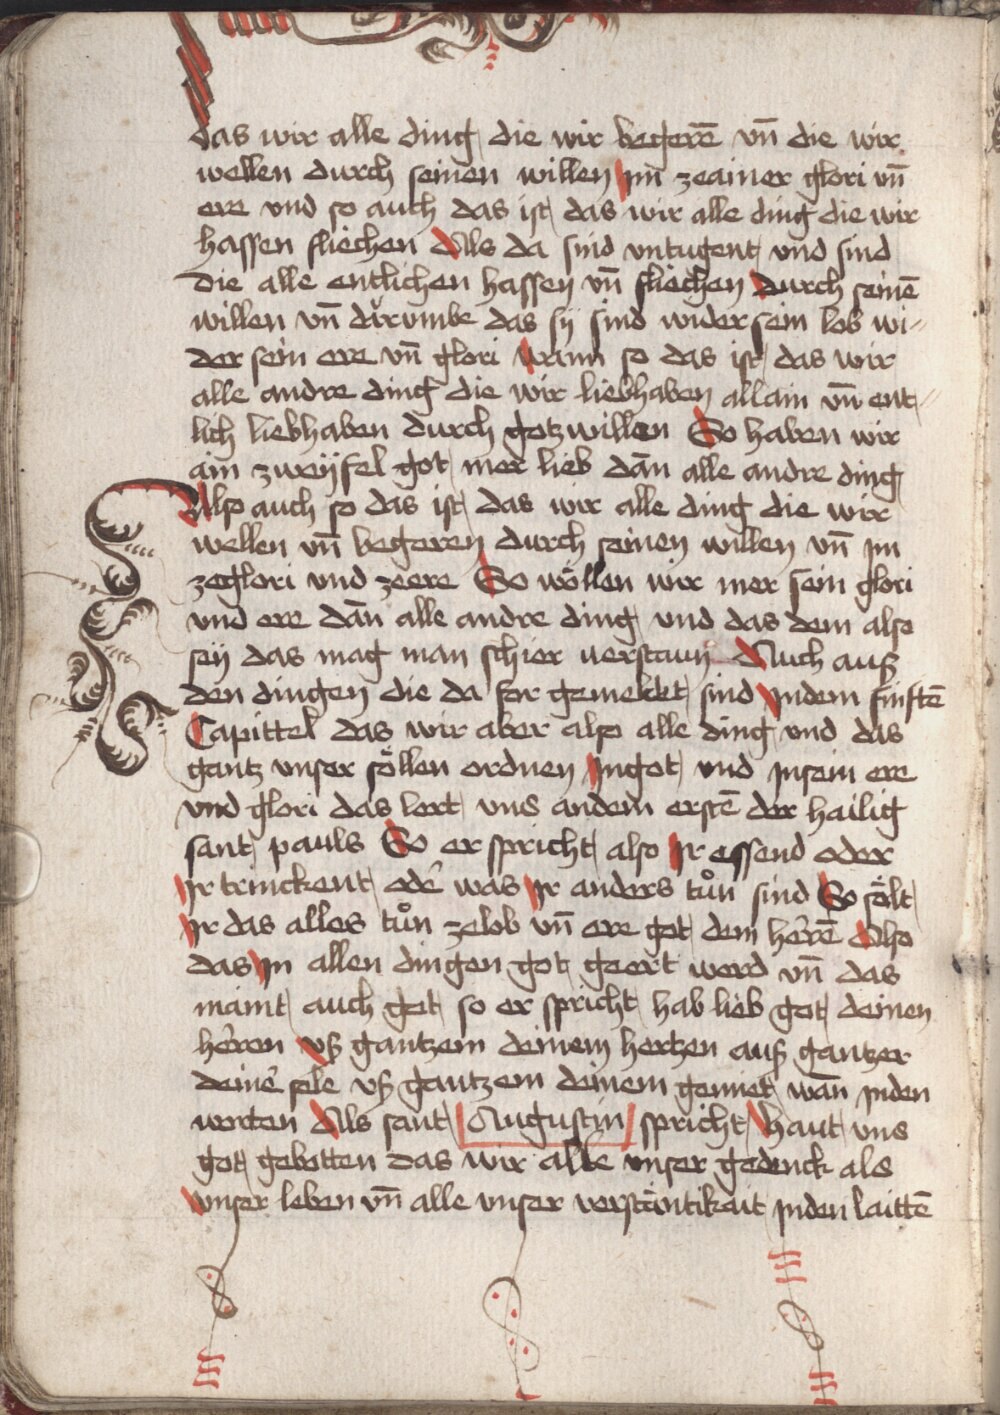 das wir alle ding die wir begerē vn̄ die wir
wellen durch seinen willen im zeainer glori vn̄
ere vnd so auch das ist das wir alle ding die wir
hassen fliechen Als da sind vntugent vnd sind
die alle entlichen hassen vn̄ fliechen durch seinē
willen vn̄ darumbe das sy sind wider sein lob wi⸗
der sein ere vn̄ glori wann so das ist das wir
alle andre ding die wir liebhaben allain vn̄ ent⸗
lich liebhaben durch gotz willen So haben wir
ain zweyfel got mer lieb dan̄ alle andre ding
Also auch so das ist das wir alle ding die wir
wellen vn̄ begeren durch seinen willen vn̄ im
zeglori vnd zeere So wöllen wir mer sein glori
vnd ere dan̄ alle andre ding vnd das dem also
sey das mag man schier verstaun Auch auß
den dingen die da for gemeldet sind Indem finftē
Capittel das wir aber also alle ding vnd das
gantz vnser söllen ordnen Ingot vnd Insein ere
vnd glori das lert vns andem erstē der hailig
sant pauls So er spricht also Ir essend oder
Ir trinckent oder̄ was Ir anders tůn sind So sölt
Ir das alles tůn zelob vn̄ ere got dem herrē Also
das In allen dingen got geert werd vn̄ das
maint auch got so er spricht hab lieb got deinen
herren vß gantzem deinem hertzen auß gantzer
deiner̄ sele vß gantzem deinem gemiet wan̄ Inden
worten Als sant Augustin spricht haut vns
got gebotten das wir alle vnser gedenck als
vnser leben vn̄ alle vnser verstäntikait Inden laittē